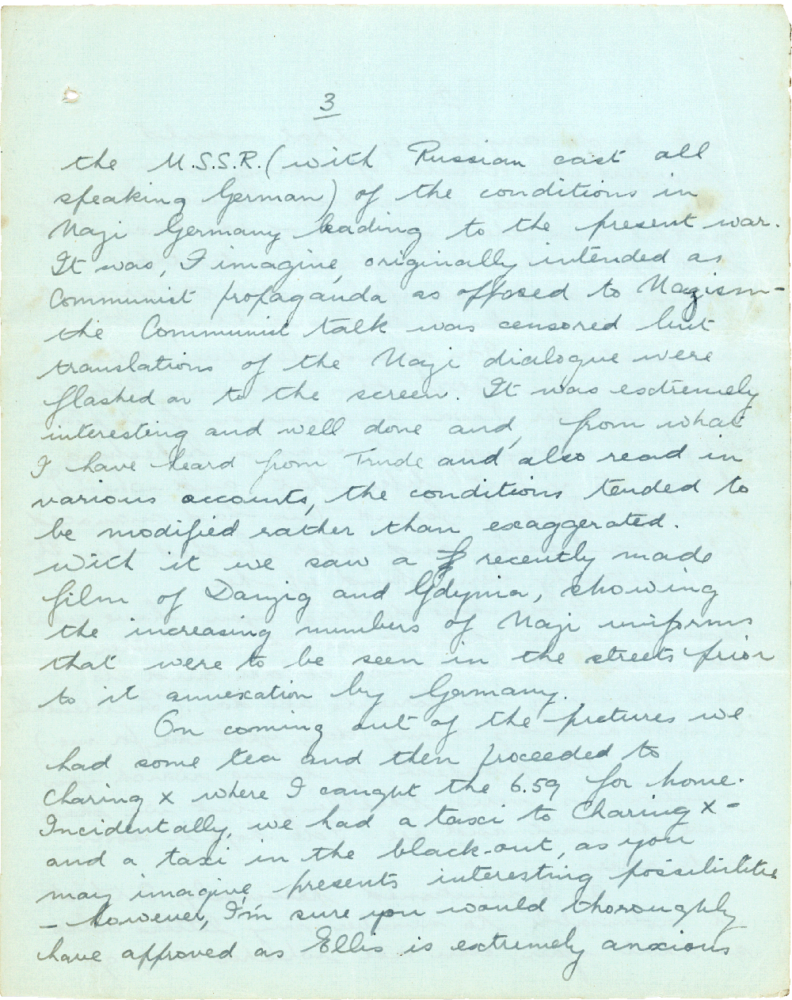 3
the U.S.S.R. (with Russian cast all
speaking German) of the conditions in
Nazi Germany leading to the present war.
It was, I imagine, originally intended as
Communist propaganda as opposed to Nazism -
the Communist talk was censored but
translations of the Nazi dialogue were
flashed on to the screen. It was extremely
interesting and well done and, from what
I have heard from Trude and also read in
various accounts, the conditions tended to
be modified rather than exaggerated.
With it we saw a recently made
film of Danzig and Gdynia, showing
the increasing numbers of Nazi uniforms
that were to be seen in the streets prior
to it annexation by Germany.
On coming out of the pictures we
had some tea and then proceeded to
Charing X where I caught the 6.59 for home.
Incidentally, we had a taxi to Charing X -
and a taxi in the black-out, as you
may imagine, presents interesting possibilities
- however, I'm sure you would thoroughly
have approved as Ellis is extremely anxious